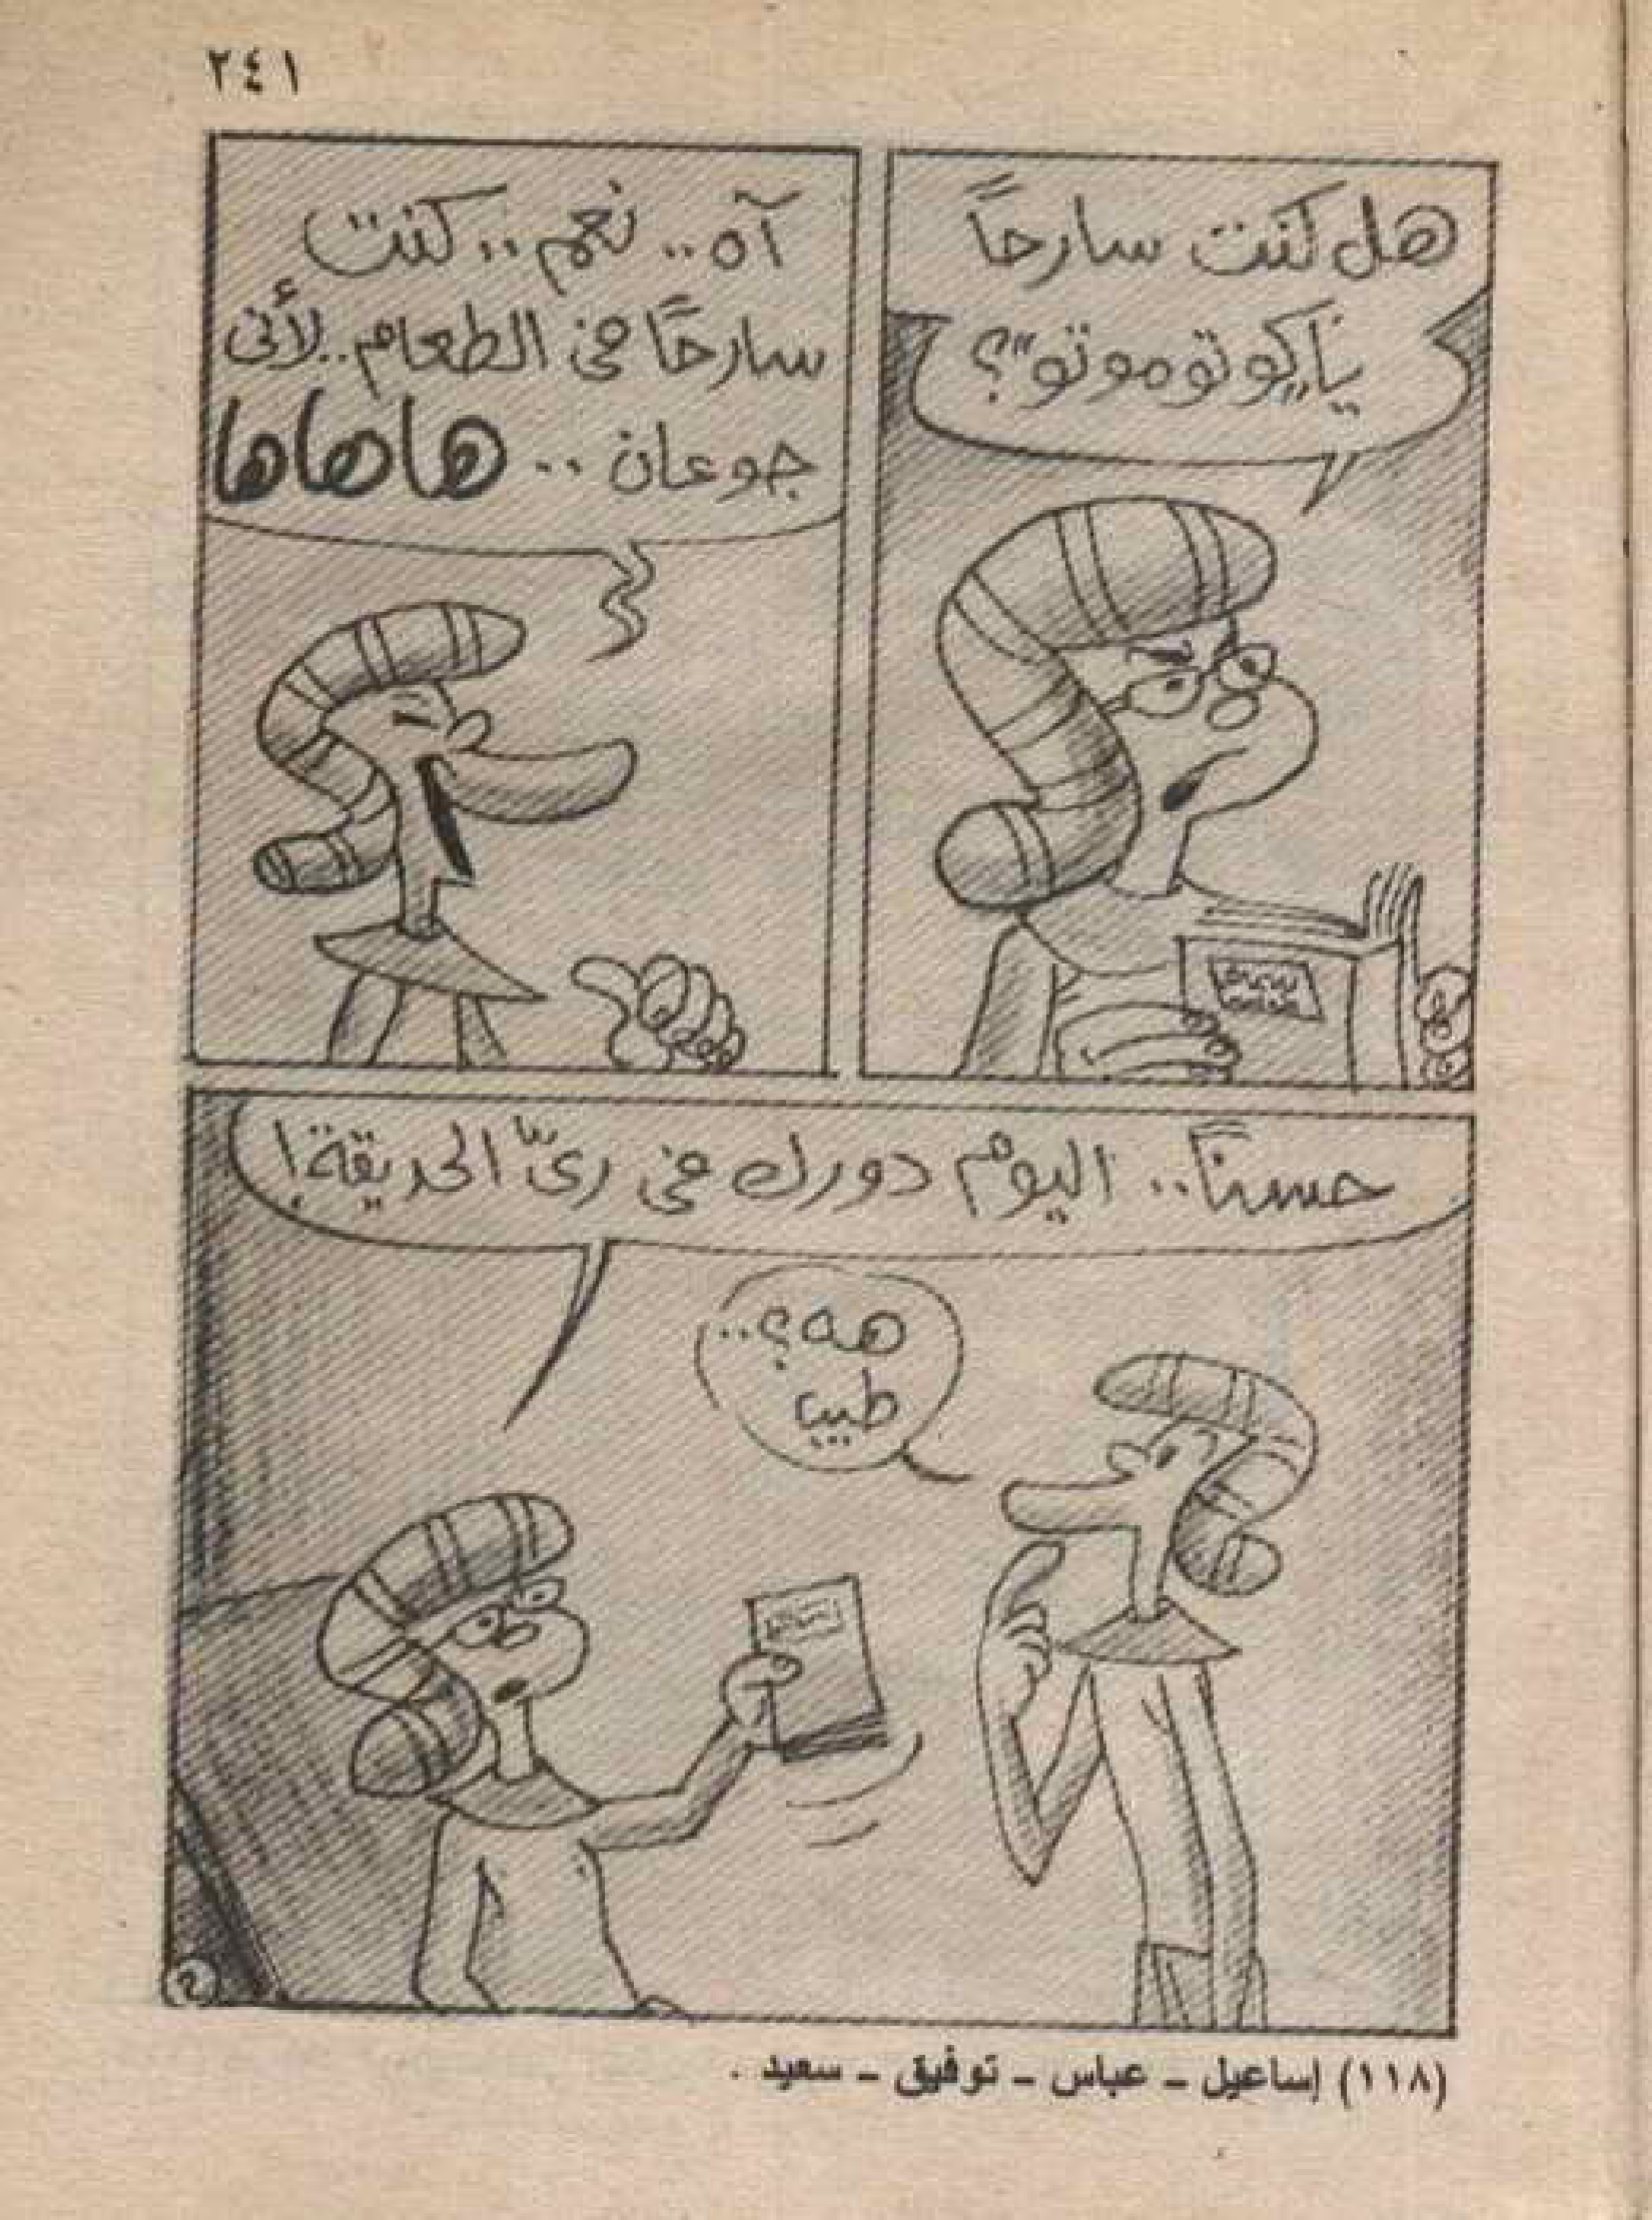 ٢٤١
هل كنت سارحاً
يا "كوتوموتو"؟
آه.. نعم.. كنت
سارحاً فى الطعام.. لأنى
جوعان .. هاهاها
حسناً.. اليوم دورك فى رىّ الحديقة!
هه؟..
طيب
(١١٨) إساعيل – عباس – توفيق – سعيد .